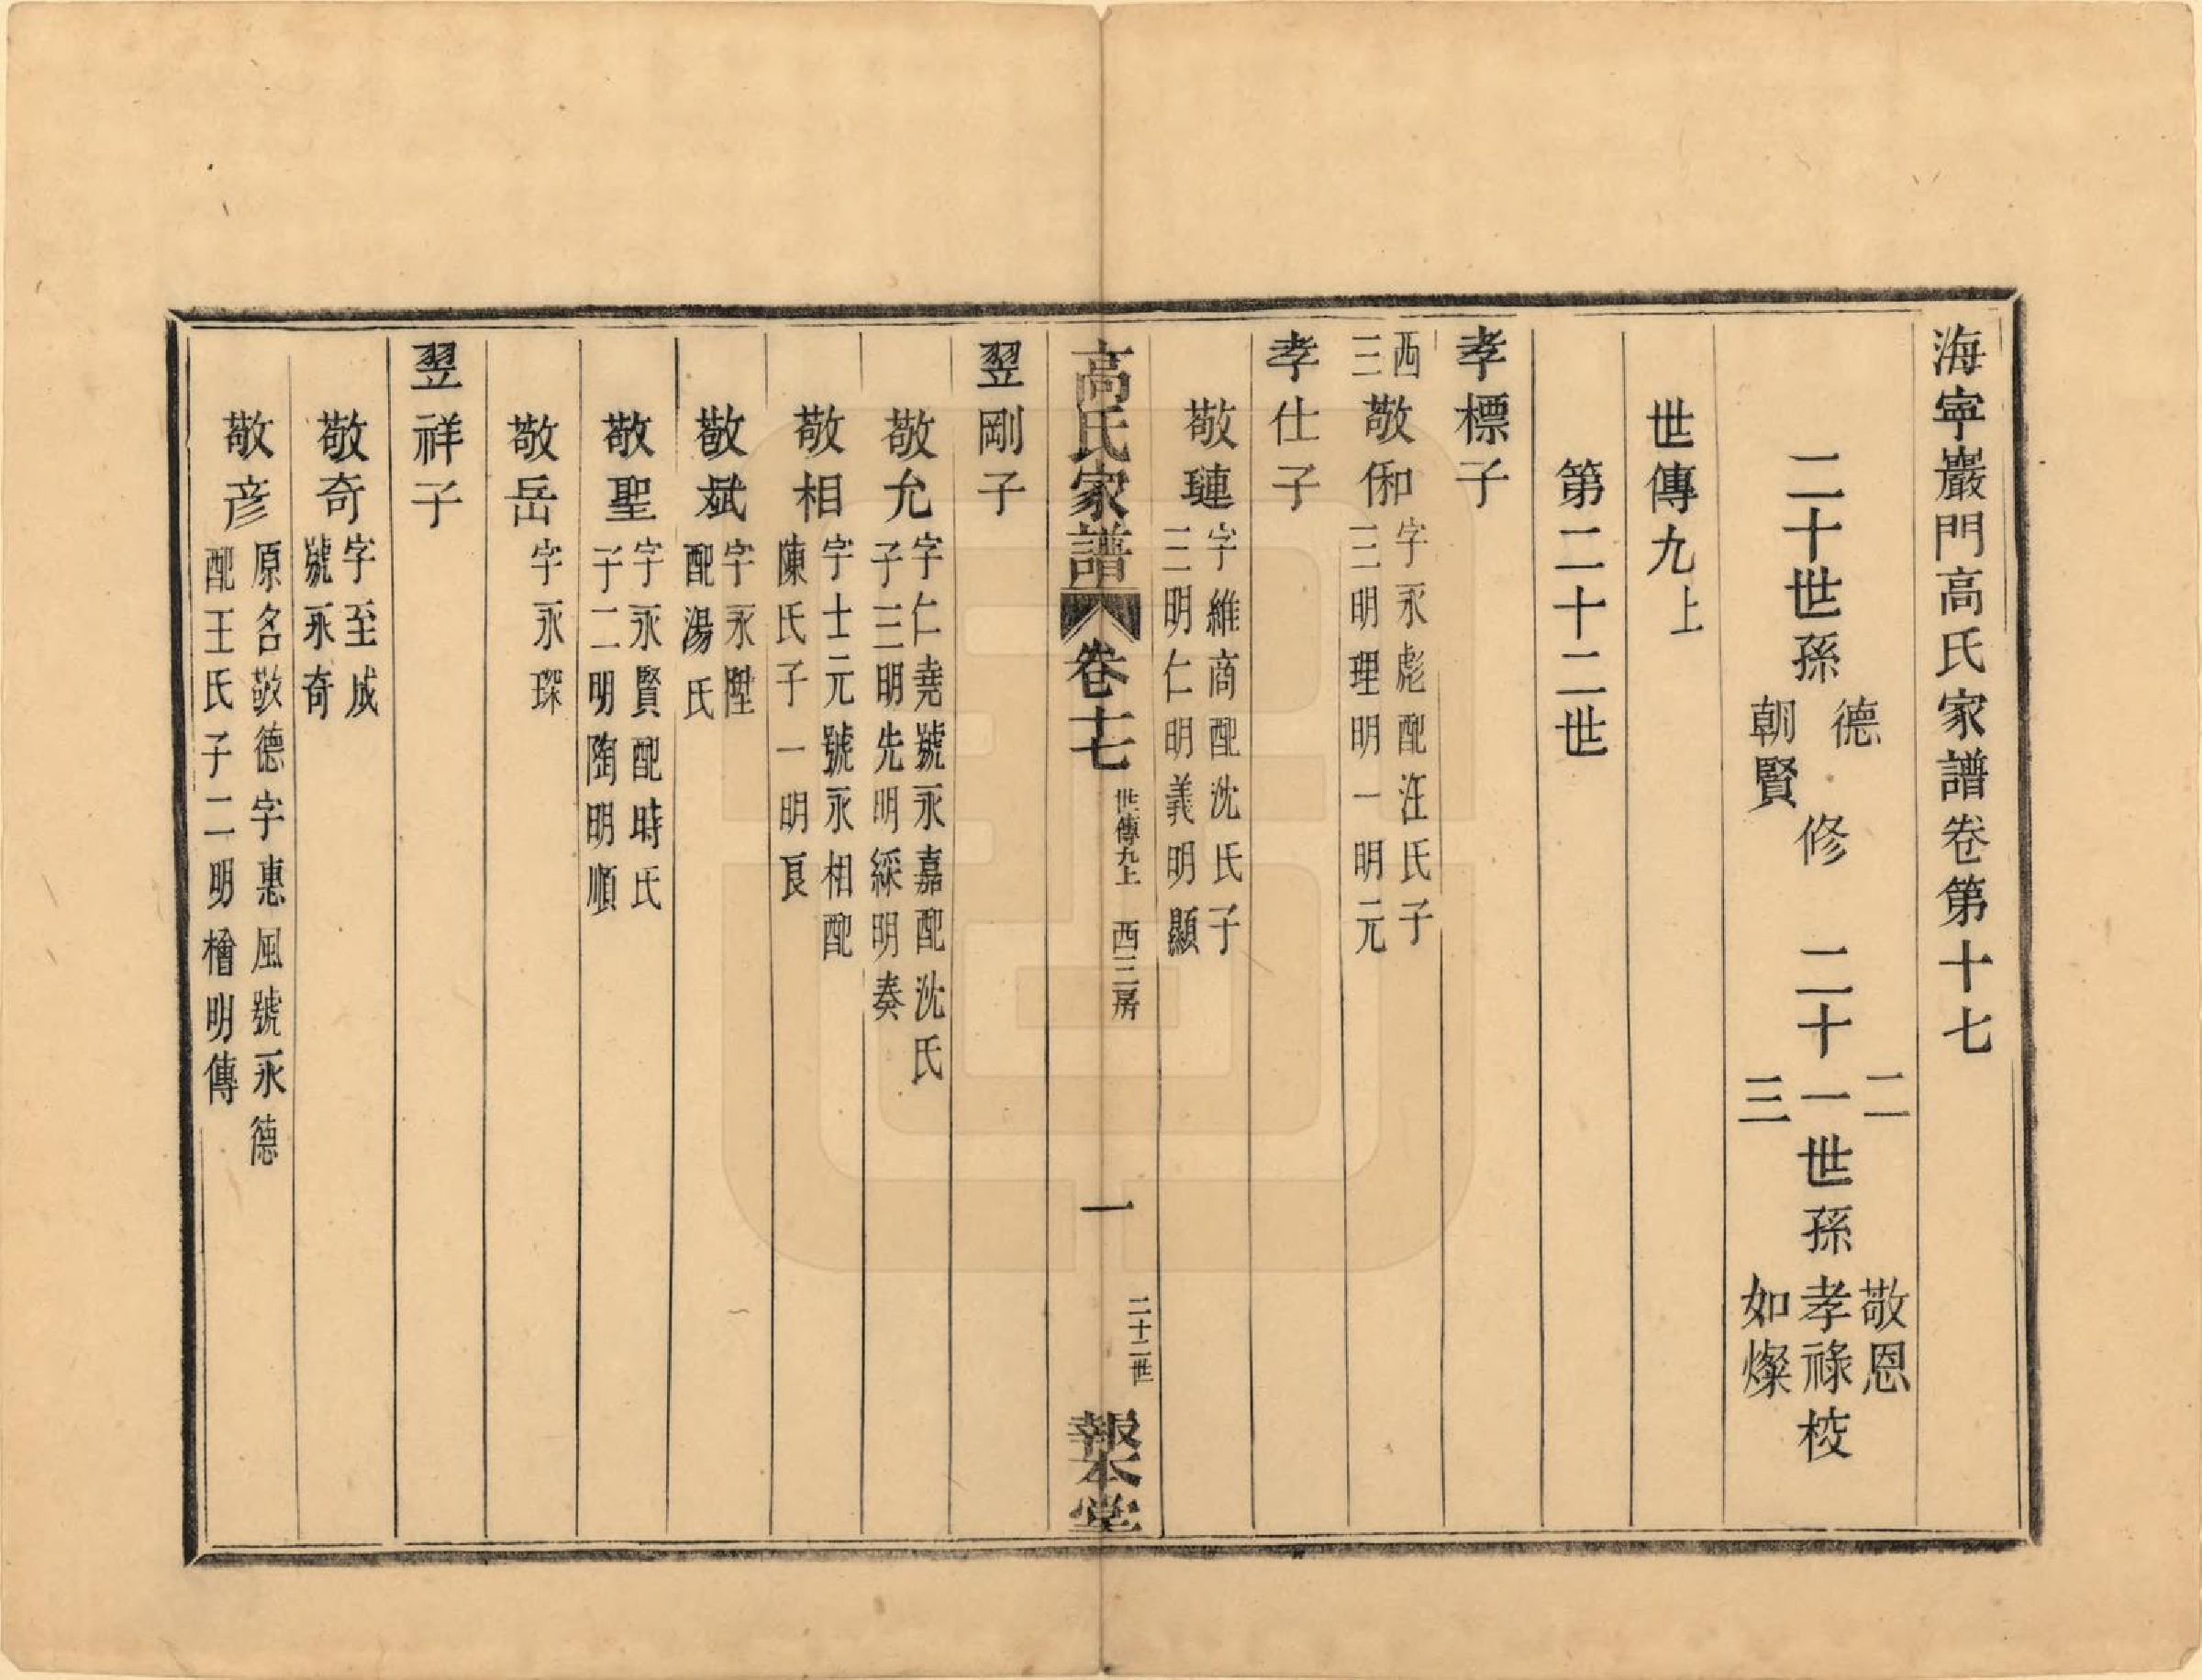 海寧巖門高氏家譜卷第十七
二十世孫德朝賢修 二十一二三世孫敬恩孝祿如燦校
世傳九上
第二十二世
孝標子
西三敬和字永彪配汪氏子三明理明一明元
孝仕子
敬璉字維商配沈氏子三明仁明義明顯
高氏家譜 卷十七 世傳九上 西三房 一 二十二世 報本堂
翌剛子
敬允字仁堯號永嘉配沈氏子三明先明綵明奏
敬相字士元號永相配陳氏子一明良
敬斌字永陞配湯氏
敬聖字永賢配時氏子二明陶明順
敬岳字永琛
翌祥子
敬奇字至成號永奇
敬彥原名敬德字惠風號永德配王氏子二明檜明傳